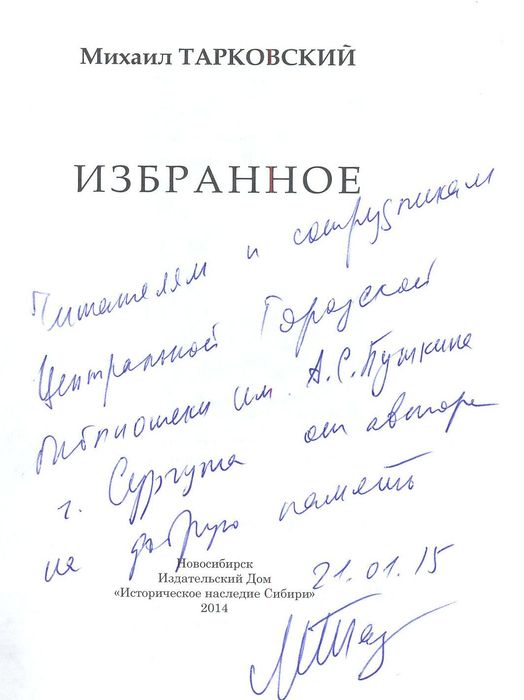 Михаил ТАРКОВСКИЙ
ИЗБРАННОЕ
Читателям и сотрудникам
Центральной Городской
библиотеки им. А.С.Пушкина
г. Сургута от автора
на добрую память
21.01.15
Новосибирск
Издательский Дом
«Историческое наследие Сибири»
2014